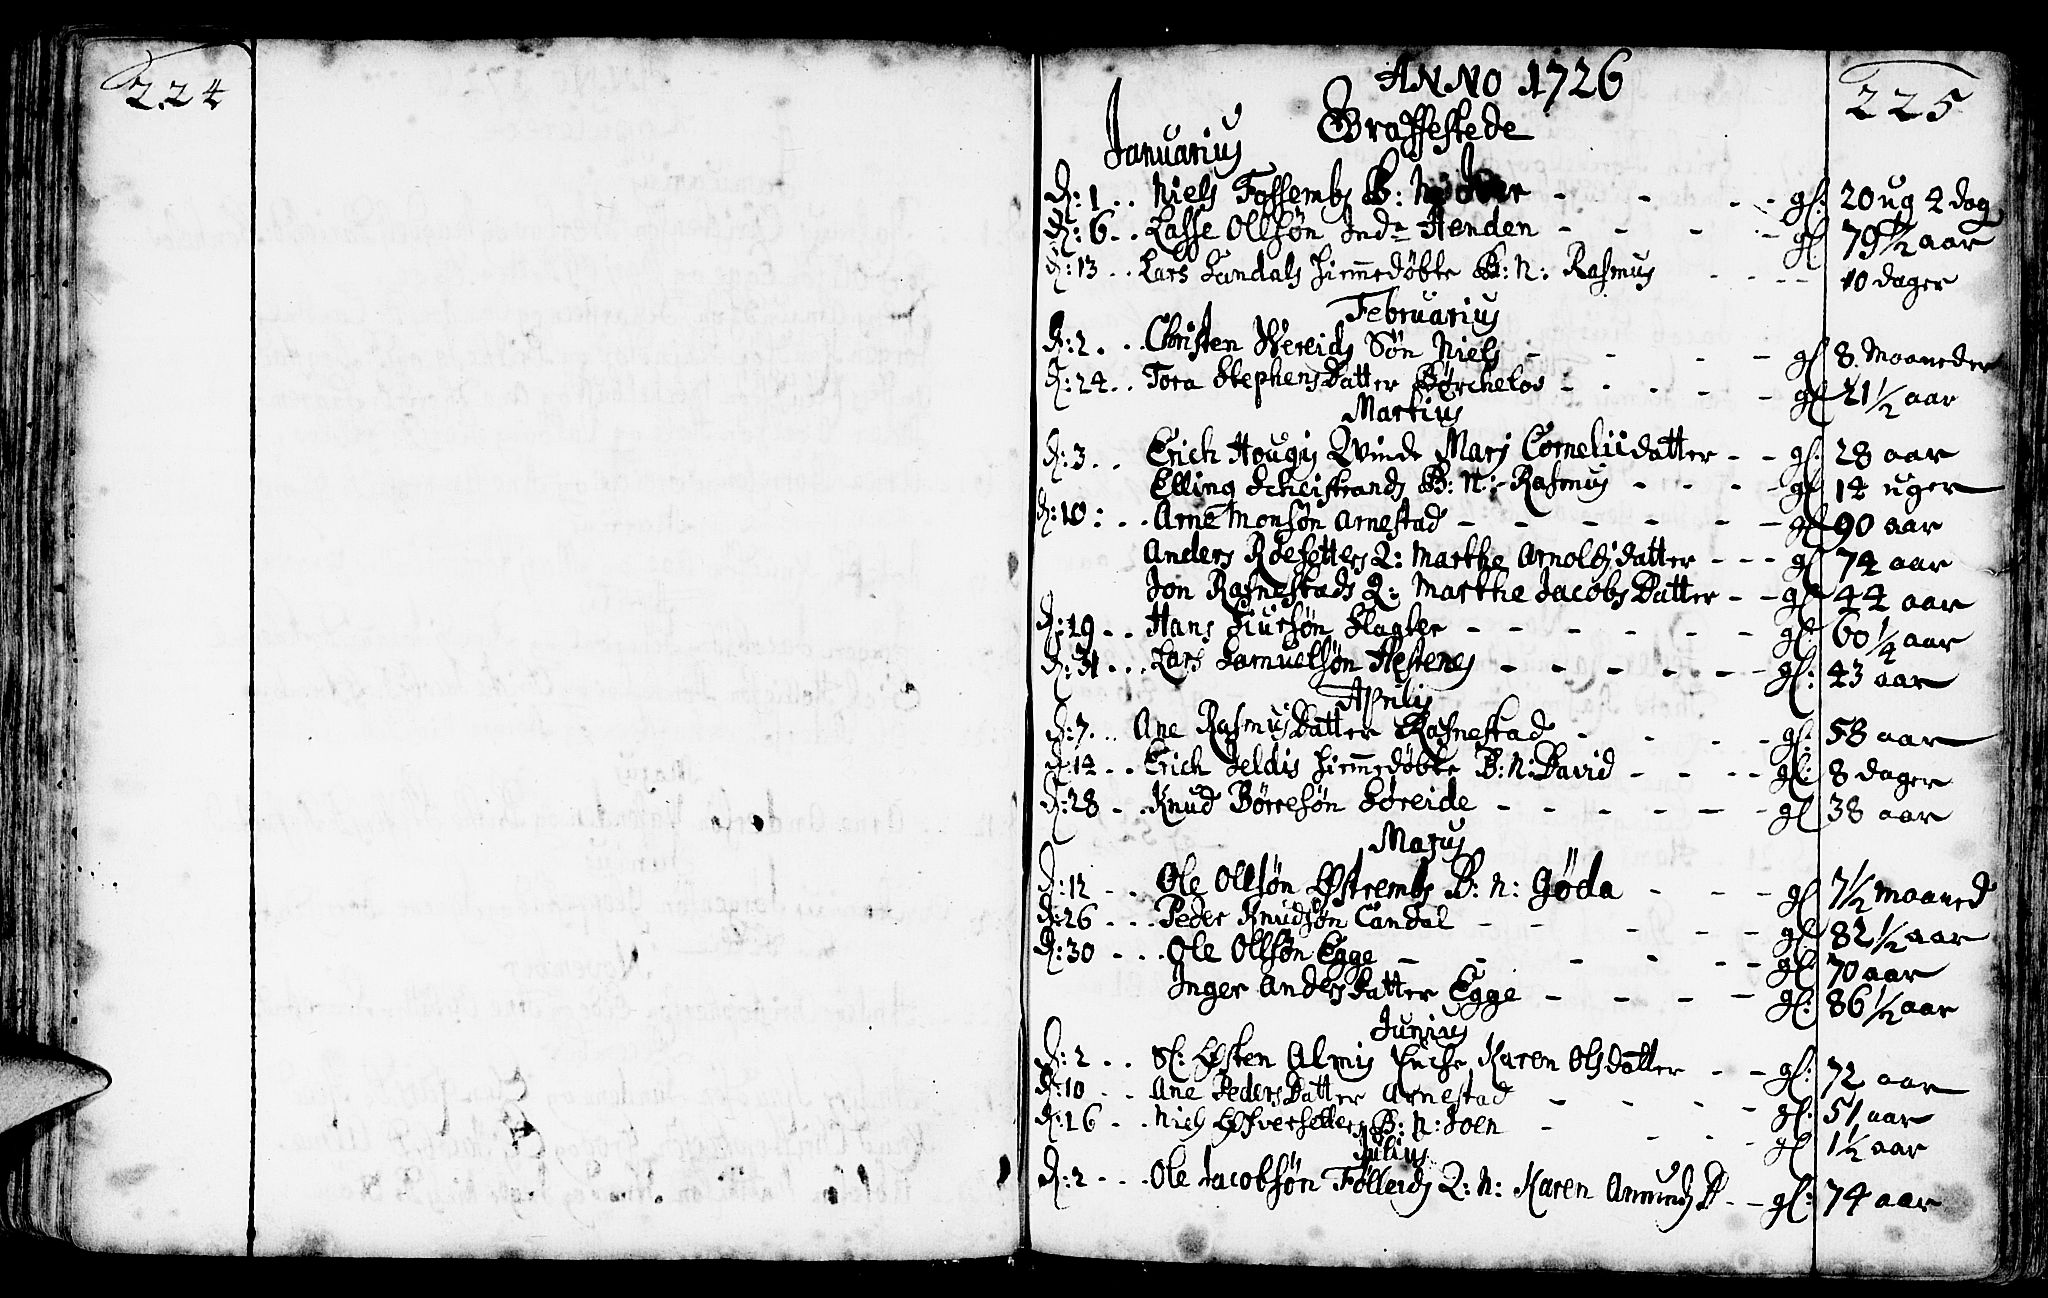 224
ANNO 1726
225
Graffestede
Januarius
d: 1 .. Niels Fossembs B: - - - - gl: 20 ug 2 dag
d: 6 .. Lasse Ollsøn Ind= Henden - - - - gl 79 1/2 aar
d: 13 .. Lars Sandals hiemmedøbte B: N: Rasmus - - - - 10 dager
Februarius
d: 2 . . Christen Hereids Søn Niels - - - - gl 8 Maaneder
d: 24 .. Tora StephensDatter Børcheloe - - - - gl 21 1/2 aar
Martius
d: 3 .. Erich Hougis Qvinde Mari Corneliidatter - - gl: 28 aar
Elling Scheistrands B: N: Rasmus - - - - gl 14 uger
d: 10: . . Arne Monsøn Arnestad - - - - - - gl 90 aar
Anders Roesetters Q: Marthe Arnolds datter - - - gl 74 aar
Jon Rasnestads Q: Marthe Jacobs Datter - - gl 44 aar
d: 19 .. Hans Siursøn Slagter - - - - - - gl: 60 1/4 aar
d: 31 ... Lars Samuelsøn Hestenes - - - - - - gl: 43 aar
Aprilis
d: 7 ... Ane RasmusDatter Rasnestad - - - - gl: 58 aar
d: 14 .. Erich Jeldis hiemmedøbte B: N: David - - - - gl: 8 dager
d: 28 - .. Knud Børresøn Søreide - - - - - - gl 38 aar
Majus
d: 12 - . . Ole Ollsøn Østrembs B: N: Gøda - - - gl 7 1/2 maaned
d: 26 - . . Peder Knudsøn Candal - - - - - gl 82 1/2 aar
d: 30 - . . . Ole Ollsøn Egge - - - - - gl 70 aar
Inger AndersDatter Egge - - - - gl: 86 1/2 aar
Junius
d: 2 . . Sl: Østen Almis Enche Karen Olsdatter - - gl: 72 aar
d: 10 . . Ane PedersDatter Arnestad - - - - gl: 51 aar
d: 16 - . . Niels B: N: Joen - - - - gl 1 1/2 aar
Julius
d: 2 - . . . Ole Jacobsøn Følleids Q: N: Karen Amunds D - - gl: 74 aar